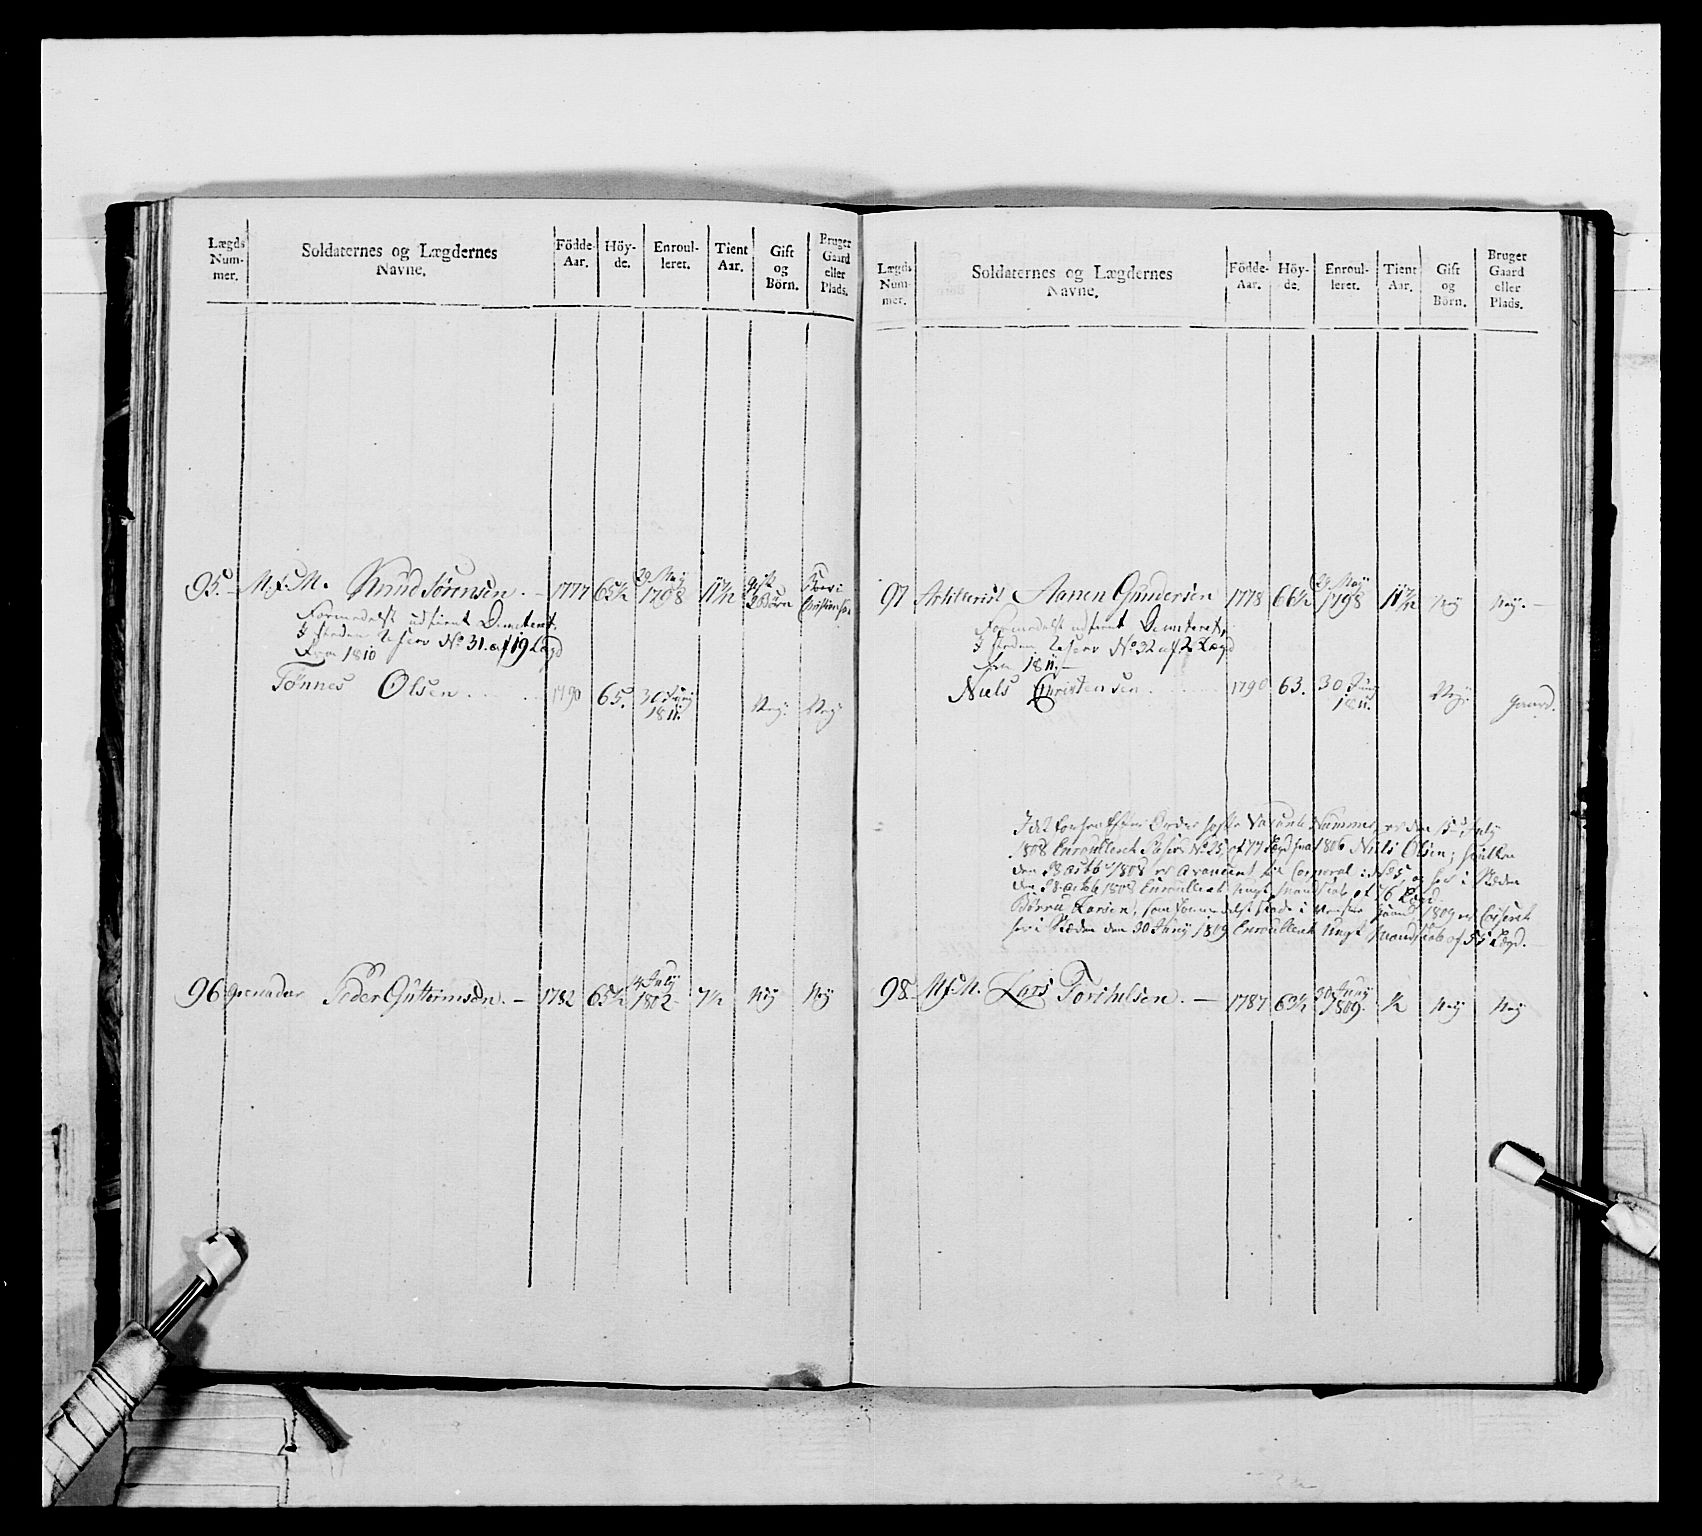 Lægds Num- mer.
Soldaternes og Lægdernes Navne.
Födde- Aar.
Höy- de.
Enroul- leret.
Tient Aar.
Gift og Börn.
Bruger Gaard eller Plads.
95. M.F.M. Knud Sørensen. 1777 65½ 29 May 1798 11½ gift 2 Børn
Formedelst udtient Dimiteret,
I steden Reserv No 31. af 19 Lægd
Fra 1810
Tønnes Olsen 1790 65. 30 Juny 1811. Neÿ. Neÿ
96 Grenadeer Peder Guttormsen. 1782 65½ July 1802 7½ Neÿ Neÿ
Lægds Num- mer.
Soldaternes og Lægdernes Navne.
Födde- Aar.
Höy- de.
Enroul- leret.
Tient Aar.
Gift og Börn.
Bruger Gaard eller Plads.
97 Artillerist Aanen Gundersen 1778 66½ 29 May 1798 11½ Neÿ Neÿ.
Formedelst udtient Dimiteret,
I steden Reserv No 32 af 2 Lægd
Fra 1811.
Niels Christensen 1790 63. 30 Juny 1811. Neÿ. Gaard.
Vacante Nummer, er den July
1808 Enroulleret No 25 af 77 Lægd fra 1806 Niels Olsen; hvilken
den 28 1808 er Avanceret til Corporal i No 5 og her i Stæden
den 28 1808 Enroulleret Ungt Mandskab af 6 Lægd
Larsen, som formedelst 1809 er Casseret
her i Stæden den 30 Juny 1809 Enroulleret Ungt Mandskab af 55 Lægd.
98. M.F.M. Lars Torchelsen. 1787 63½ 30 Juny 1809. ½ Neÿ Neÿ